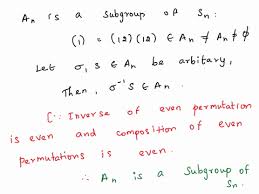 An is a Subgroup of Sn:
(1) = (12)(12) ∈ An ≠ An ≠ ϕ
Let σ, S ∈ An be arbitary,
Then, σ⁻¹ S ∈ An.
[∵ Inverse of even permutation
is even and composition of even
permutations is even.
∴ An is a Subgroup of
Sn.